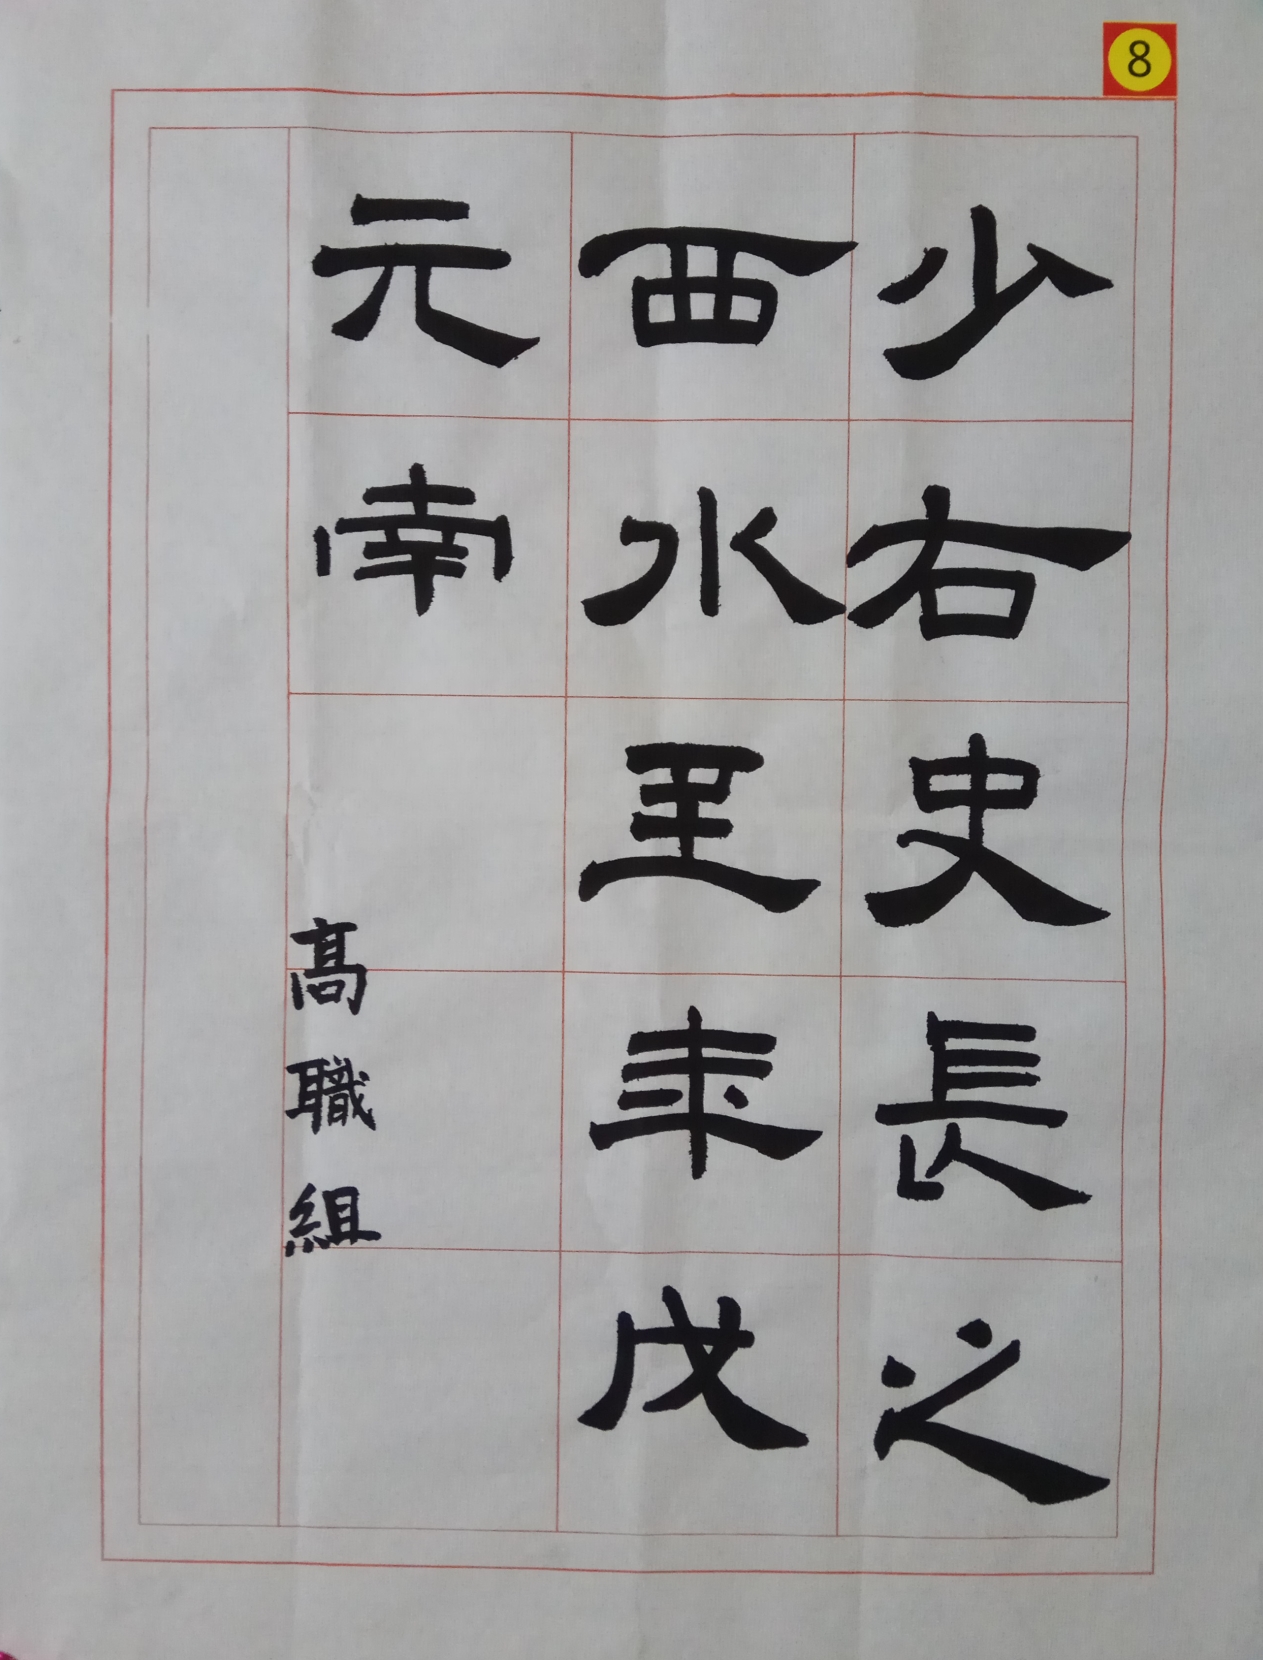 8
少右史長之
西水至年戊
元南
高職組